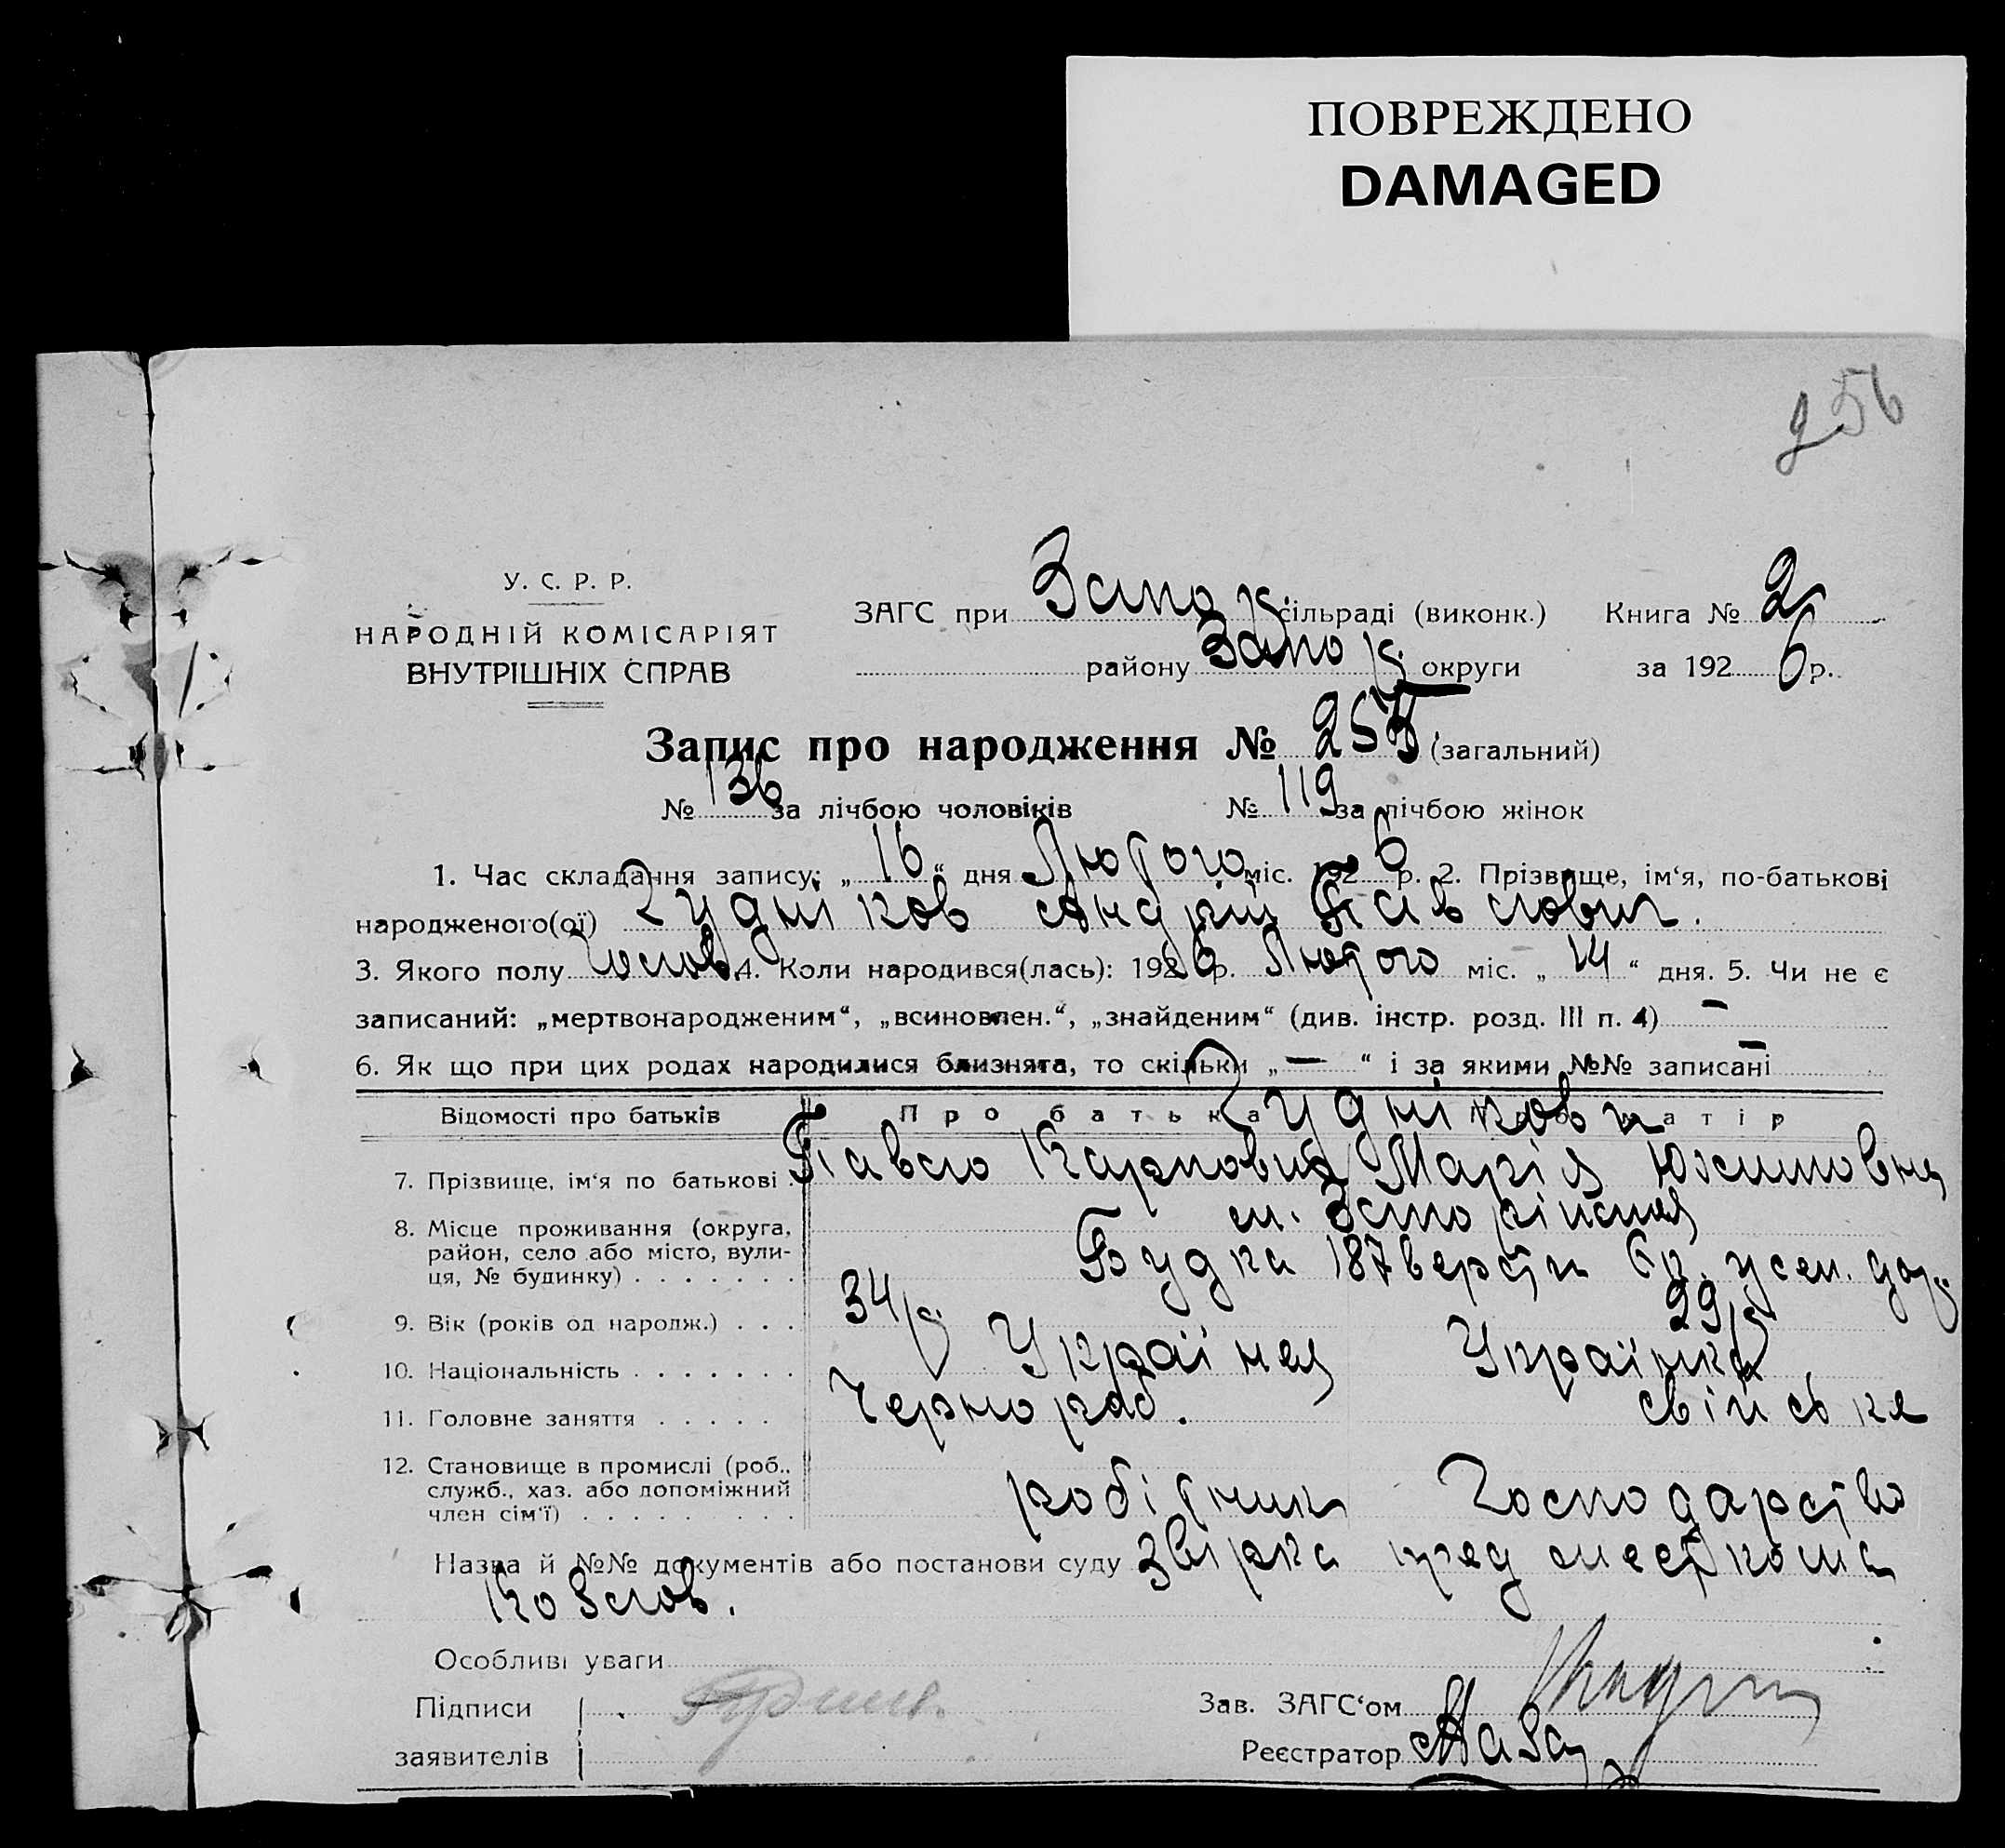 ПОВРЕЖДЕНО
DAMAGED
256
У. С. Р. Р.
НАРОДНІЙ КОМІСАРІЯТ
ВНУТРІШНІХ СПРАВ
ЗАГС при Запор. сільраді (виконк.) Книга № 2
району Запор. округи за 1926 р.
Запис про народження № 255 (загальний)
№ 136 за лічбою чоловіків № 119 за лічбою жінок
1. Час складання запису: „16“ дня Лютого міс. 1926 р. 2. Прізвище, ім‘я, по-батькові
народженого(ої) Рудніков Андрій Павлович.
3. Якого полу Чолов. 4. Коли народився(лась): 1926 р. Лютого міс. „14“ дня. 5. Чи не є
записаний: „мертвонародженим“, „всиновлен.“, „знайденим“ (див. інстр. розд. III п. 4) —
6. Як що при цих родах народилися близнята, то скільки „—“ і за якими №№ записані —
Відомості про батьків Про батька Рудніковы матір
7. Прізвище, ім‘я по батькові Павло Карпович Марія Юхимовна
8. Місце проживання (округа, район, село або місто, вулиця, № будинку) м. Запоріжжя
Будка 187 версти
9. Вік (років од народж.) 34 р. 29 р.
10. Національність Українец Українка
11. Головне заняття Чернораб. свійське
12. Становище в промислі (роб., служб., хаз. або допоміжний член сім‘ї) робітник Господарство
Назва й №№ документів або постанови суду пред месткома
Козлов.
Особливі уваги
Підписи
заявителів
Зав. ЗАГС‘ом
Реєстратор